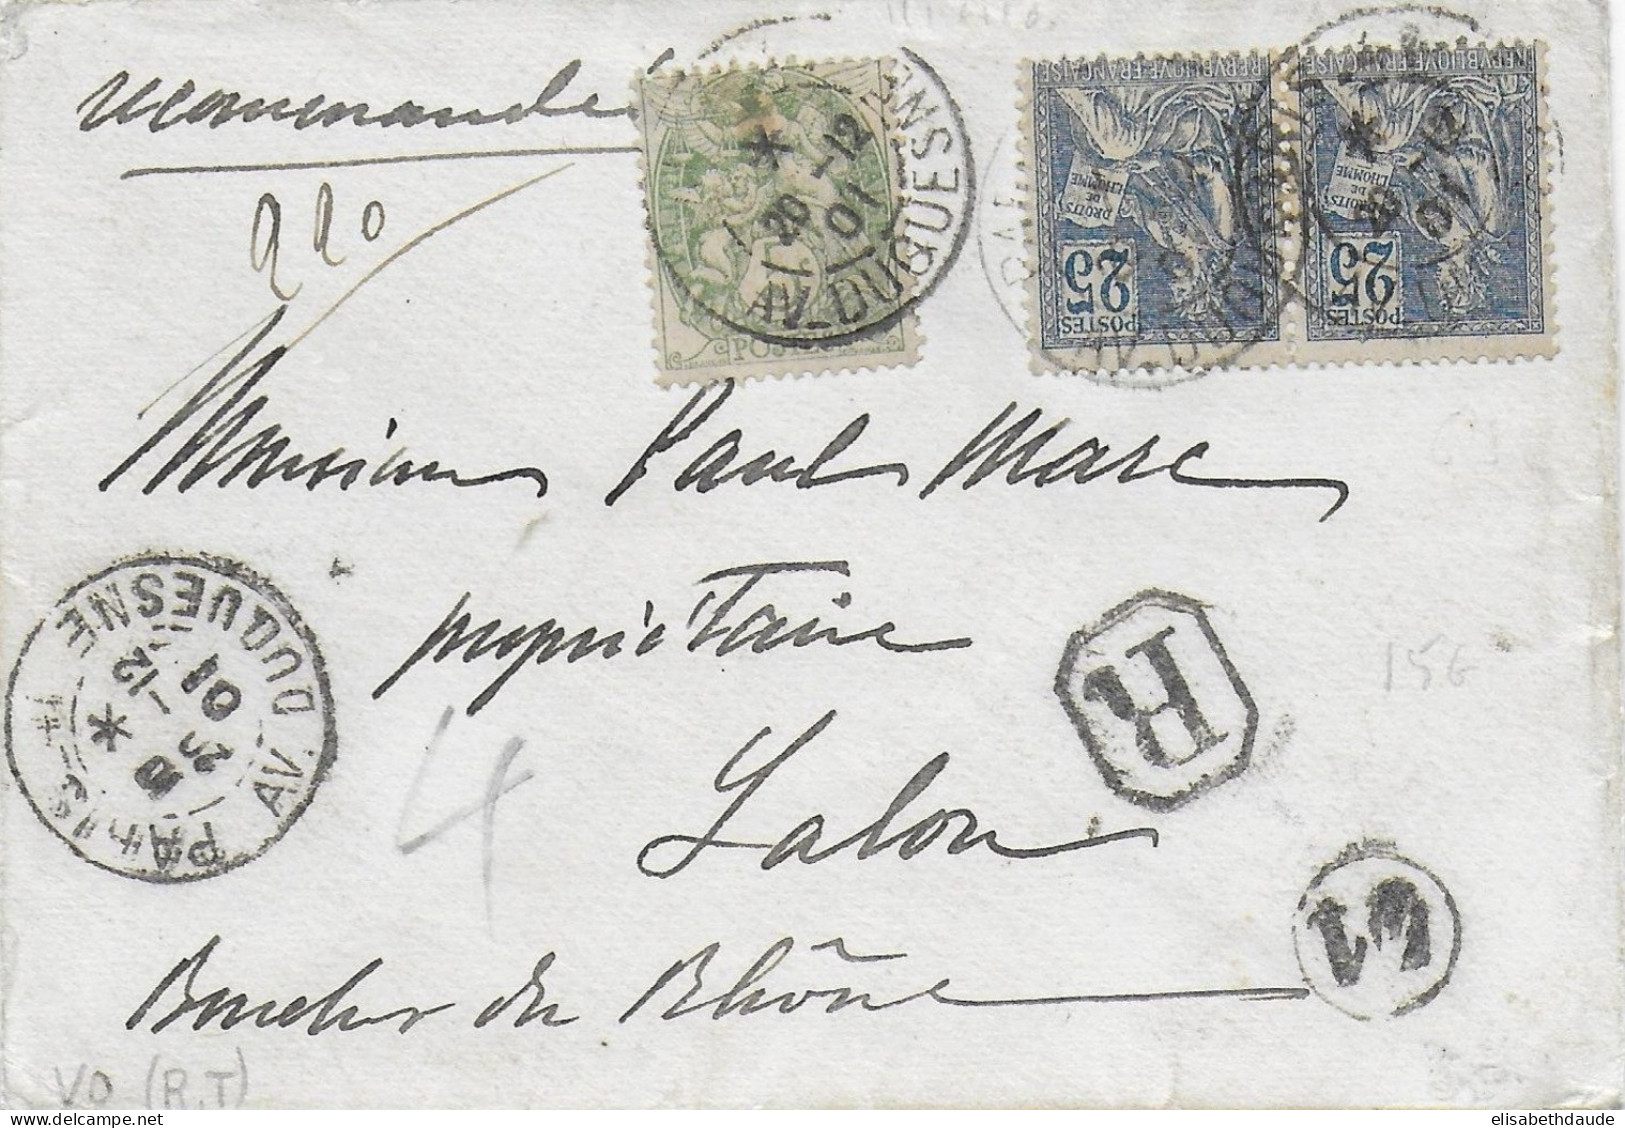 recommandé
220
REPUBLIQUE FRANÇAISE
DROITS DE L'HOMME
25
POSTES
REPUBLIQUE FRANÇAISE
DROITS DE L'HOMME
25
POSTES
5
POSTES
*
20 -12
01
AV. DUQUESNE
Monsieur Paul Marc
propriétaire
Salon
Bouches du Rhône
PARIS
*
-12
01
AV. DUQUESNE
R
4
156
VO (R.T)
elisabethdaude